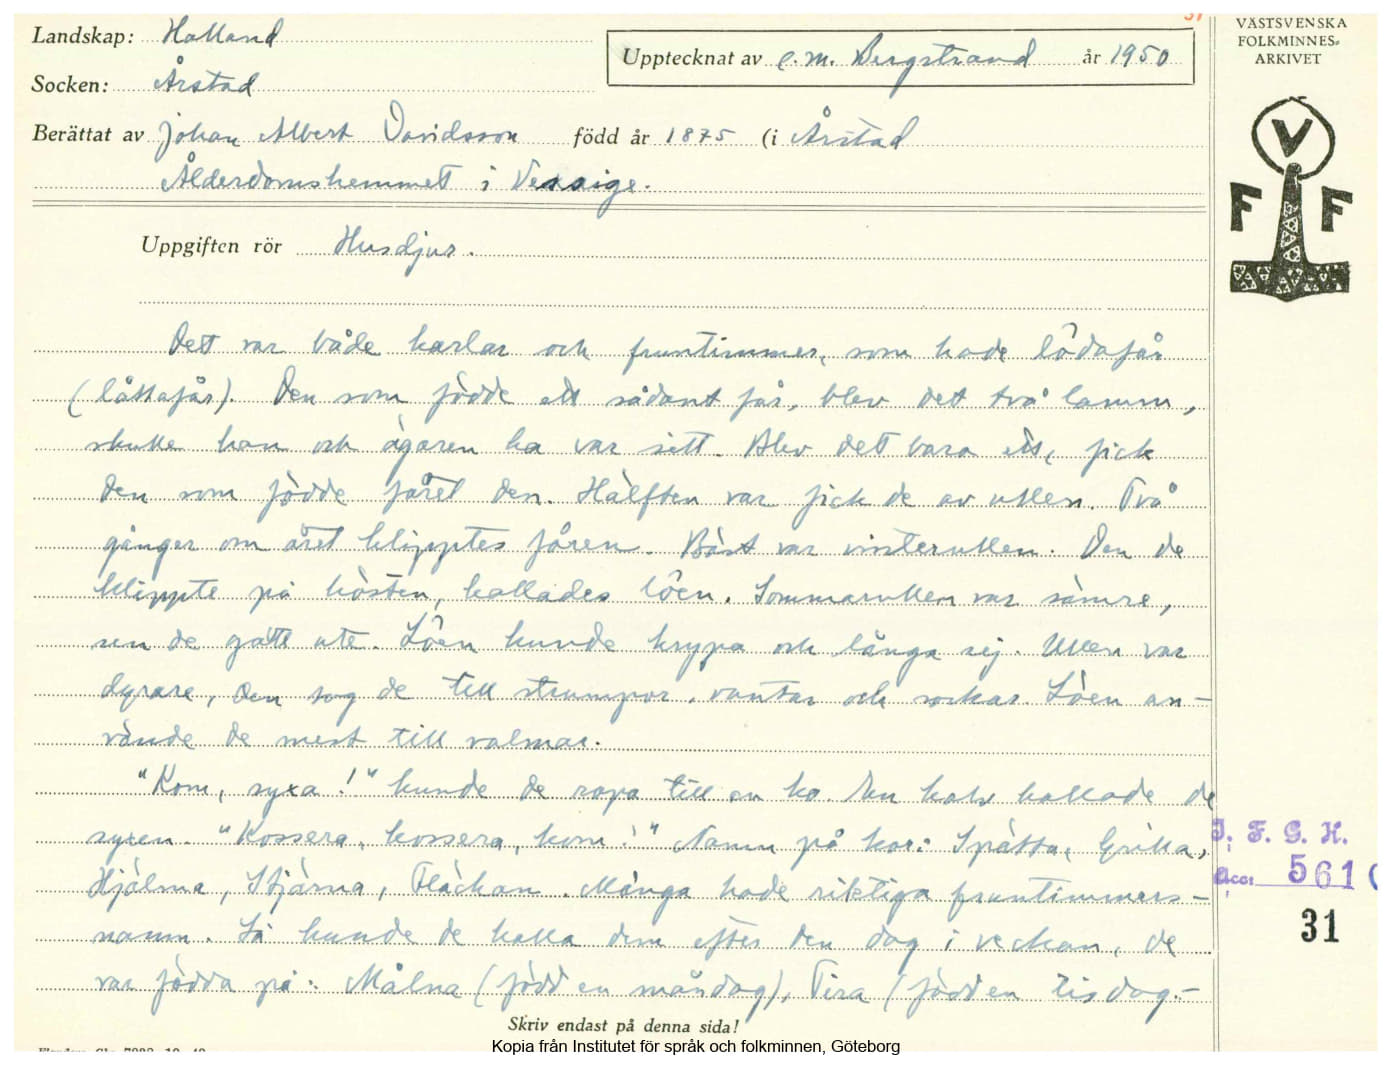 Landskap: Halland
Socken: Årstad
Upptecknat av C. M. Bergstrand år 1950
Berättat av Johan Albert Davidsson född år 1875 (i Årstad
Ålderdomshemmet i Vessige.
VÄSTSVENSKA
FOLKMINNES-
ARKIVET
V
F F
Uppgiften rör Husdjur.
Det var både karlar och fruntimmer, som hade lôdafår
(låttafår). Den som födde ett sådant får, blev det två lamm,
skulle han och ägaren ha var sitt. Blev det bara ett, fick
den som födde fåret den. Hälften var fick de av ullen. Två
gånger om året klipptes fåren. Bäst var vinterullen. Den de
klippte på hösten, kallades lôen. Sommarullen var sämre,
sen de gått ute. Lôen kunde krypa och långa sej. Ullen var
dyrare, den tog de till strumpor, vantar och sockar. Lôen an-
vände de mest till valmar.
"Kom, syxa!" kunde de ropa till en ko. En kalv kallade de
syxen. "Kossera, kossera, kom!" Namn på kor: Spätta, Grålla,
Hjälma, Stjärna, Fläckan. Många hade riktiga fruntimmers-
namn. Så kunde de kalla dem efter den dag i veckan, de
var födda på: Målna (född en måndag), Tira (född en tisdag-
I. F. G. H.
Acc. 561(
31
Skriv endast på denna sida!
Kopia från Institutet för språk och folkminnen, Göteborg